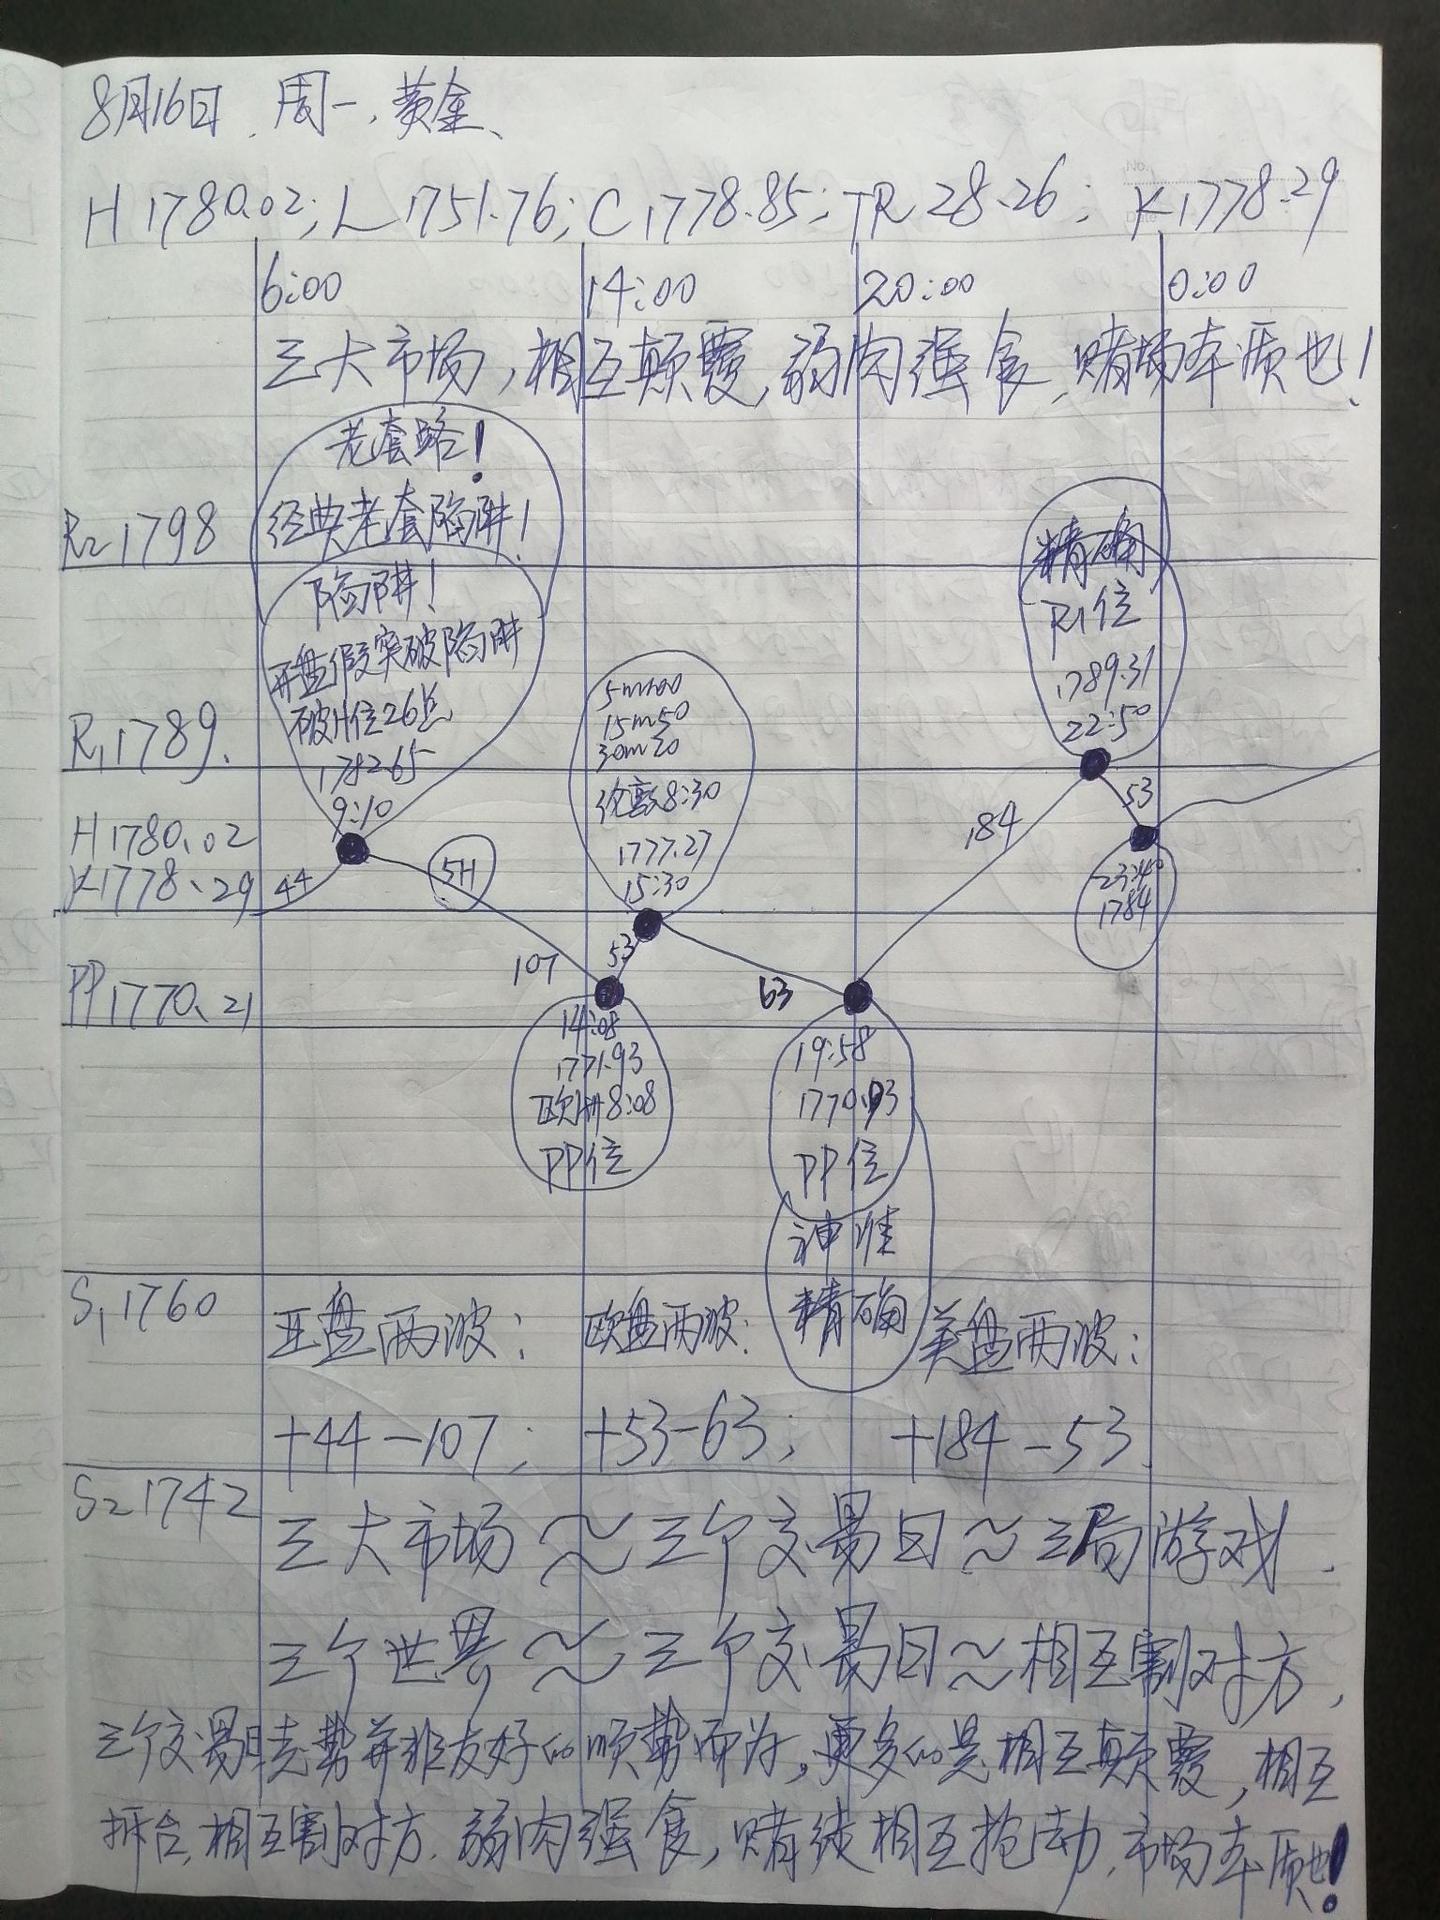 8月16日、周一、黄金、
H 1780.02; L 1751.76; C 1778.85; TR 28.26; K 1778.29
6:00 14:00 20:00 0:00
三大市场,相互颠覆,弱肉强食,赌场本质也!
老套路!
经典老套陷阱!
R2 1798
陷阱!
开盘假突破陷阱
破H位26点
1782.65
9:10
精确
R1位
1789.31
22:50
R1 1789.
5m100
15m50
30m20
伦敦8:30
1777.27
15:30
H 1780.02
K 1778.29
44
5H
107
53
63
184
53
23:40
1784
PP 1770.21
14:08
1771.93
欧洲8:08
PP位
19:58
1770.93
PP位
神准
精确
S1 1760
亚盘两波: 欧盘两波: 美盘两波:
+44-107; +53-63; +184-53.
S2 1742
三大市场~三个交易日~三局游戏.
三个世界~三个交易日~相互割对方,
三个交易日走势并非友好的顺势而为,更多的是相互颠覆,相互
拆台,相互割对方.弱肉强食,赌徒相互抢劫,市场本质也!